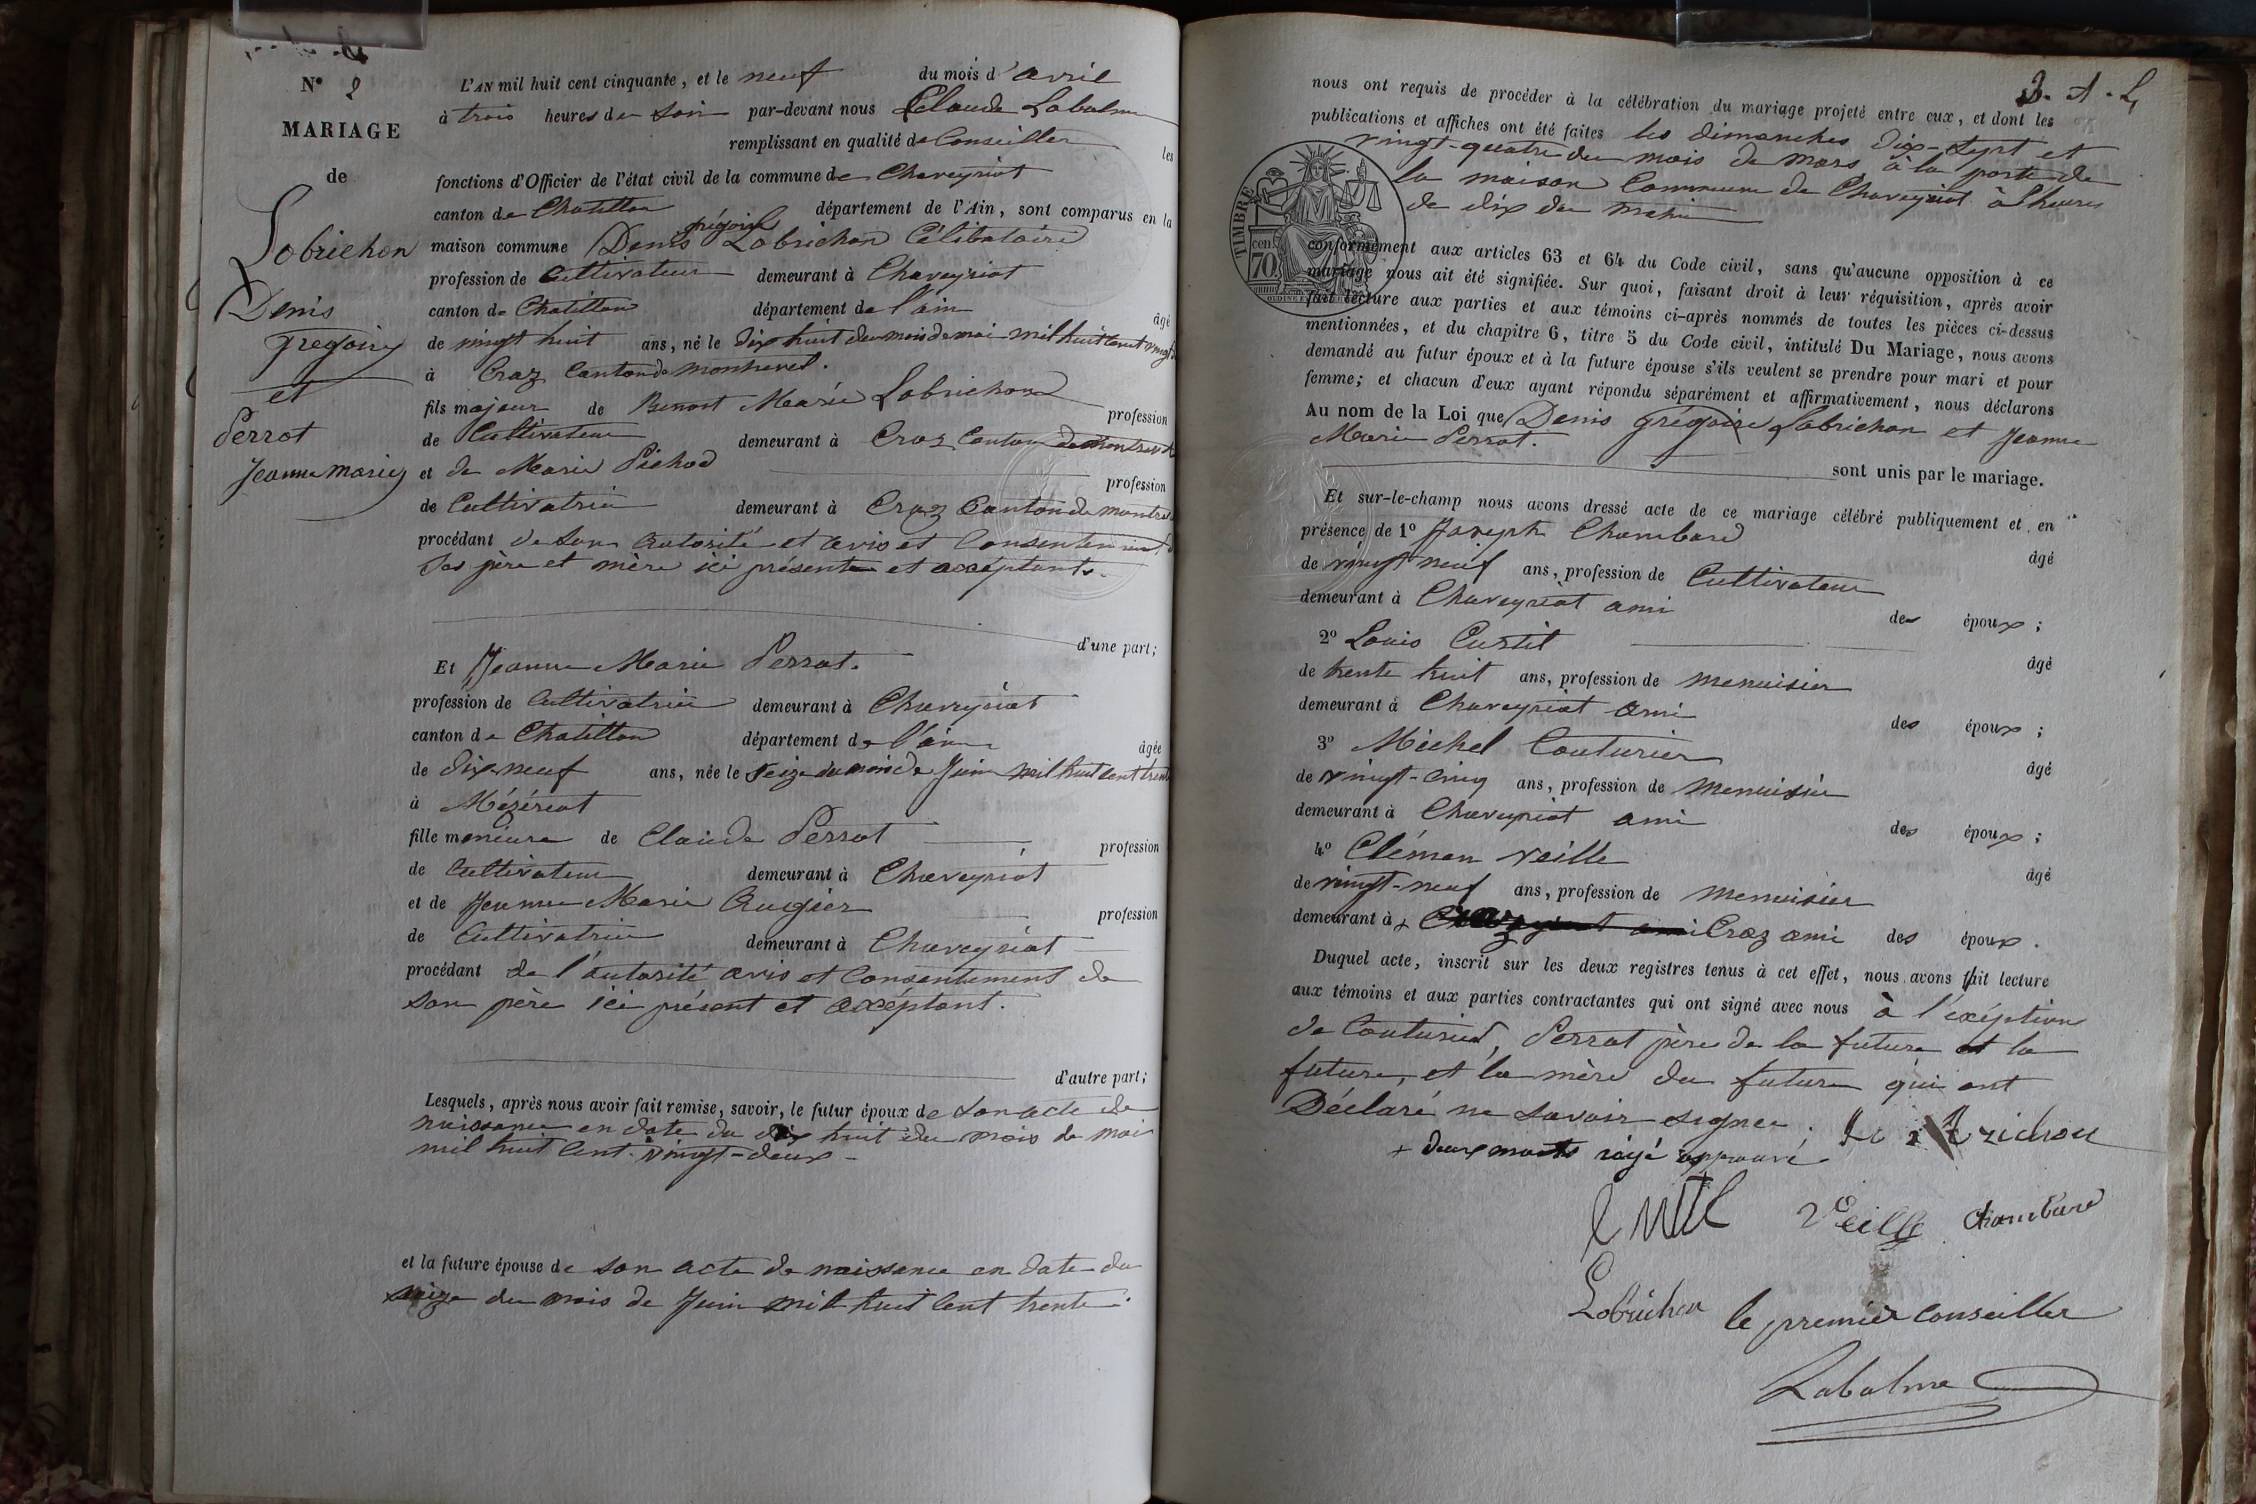 N° 2
MARIAGE
de
Lobrichon
Denis
gregoire
et
Perrot
Jeanne Marie
L'AN mil huit cent cinquante, et le neuf du mois d'avril
à trois heures du soir par-devant nous Claude Labalme
remplissant en qualité de Conseiller les
fonctions d'Officier de l'état civil de la commune de Chaveyriat
canton de Chatillon département de l'Ain, sont comparus en la
grégoire
maison commune Denis Lobrichon Célibataire
profession de Cultivateur demeurant à Chaveyriat
canton de Chatillon département de l'ain âgé
de vingt huit ans, né le dix huit du mois de mai mil huit cent vingt
à Craz Canton de montrevel.
fils majeur de Benoit Marie Lobrichon profession
de Cultivateur demeurant à Craz Canton de Montrevel
et de Marie Pichod profession
de Cultivatrice demeurant à Craz Canton de montre
procédant de son autorité et avis et Consentement d
ses père et mère ici présents et acceptants.
d'une part;
Et Jeanne Marie Perrot.
profession de Cultivatrice demeurant à Chaveyriat
canton de Chatillon département de l'ain âgée
de dix neuf ans, née le seize du mois de Juin mil huit cent trente
à Mézériat
fille menieure de Claude Perrot profession
de Cultivateur demeurant à Chaveyriat
et de Jeanne Marie Augier profession
de Cultivatrice demeurant à Chaveyriat
procédant de l'autorité avis et Consentement de
son père ici présent et accéptant.
d'autre part;
Lesquels, après nous avoir fait remise, savoir, le futur époux de son acte de
naissance en date du dix huit du mois de mai
mil huit cent vingt-deux
et la future épouse de son acte de naissance en date du
seize du mois de Juin mil huit cent trente.
3. A. L,
nous ont requis de procéder à la célébration du mariage projeté entre eux, et dont les
publications et affiches ont été faites les dimanches dix-sept et
vingt-quatre du mois de mars à la porte de
la maison Commune de Chaveyriat à l'heure
de dix du matin
TIMBRE
cen. 70
conformément aux articles 63 et 64 du Code civil, sans qu'aucune opposition à ce
mariage nous ait été signifiée. Sur quoi, faisant droit à leur réquisition, après avoir
fait lecture aux parties et aux témoins ci-après nommés de toutes les pièces ci-dessus
mentionnées, et du chapitre 6, titre 5 du Code civil, intitulé Du Mariage, nous avons
demandé au futur époux et à la future épouse s'ils veulent se prendre pour mari et pour
femme; et chacun d'eux ayant répondu séparément et affirmativement, nous déclarons
Au nom de la Loi que Denis grégoire Lobrichon et Jeanne
Marie Perrot.
sont unis par le mariage.
Et sur-le-champ nous avons dressé acte de ce mariage célébré publiquement et en
présence de 1° Joseph Chambard âgé
de vingt neuf ans, profession de Cultivateur
demeurant à Chaveyriat ami des époux;
2° Louis Curtil âgé
de trente huit ans, profession de menuisier
demeurant à Chaveyriat ami des époux;
3° Michel Couturier âgé
de vingt-cinq ans, profession de Menuisier
demeurant à Chaveyriat ami des époux;
4° Clémen Veille âgé
de vingt-neuf ans, profession de menuisier
demeurant à + Craz ami des époux.
Duquel acte, inscrit sur les deux registres tenus à cet effet, nous avons fait lecture
aux témoins et aux parties contractantes qui ont signé avec nous à l'excéption
de Couturier, Perrot père de la future et la
future, et la mère du future qui ont
Déclaré ne savoir signer.
+ deux mots rayé approuvé
Curtil Veille Chambard
Lobrichon le premier conseiller
Labalme